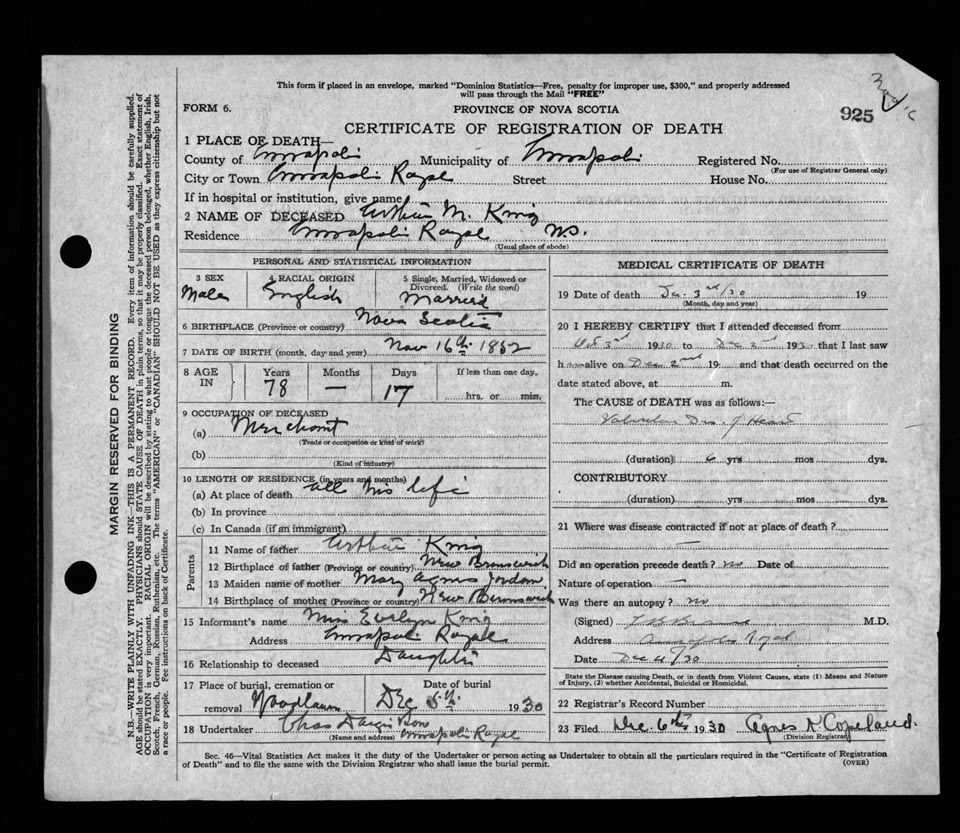 This form if placed in an envelope, marked "Dominion Statistics—Free, penalty for improper use, $300," and properly addressed
will pass through the Mail "FREE"
FORM 6.
PROVINCE OF NOVA SCOTIA
925
CERTIFICATE OF REGISTRATION OF DEATH
1 PLACE OF DEATH—
County of Annapolis Municipality of Annapolis Registered No.
(For use of Registrar General only)
City or Town Annapolis Royal Street House No.
If in hospital or institution, give name
2 NAME OF DECEASED Arthur M. King
Residence Annapolis Royal N.S.
(Usual place of abode)
PERSONAL AND STATISTICAL INFORMATION
3 SEX Male
4 RACIAL ORIGIN English
5 Single, Married, Widowed or Divorced. (Write the word) Married
6 BIRTHPLACE (Province or country) Nova Scotia
7 DATE OF BIRTH (month, day and year) Nov 16th 1852
8 AGE IN Years Months Days If less than one day.
78 — 17 hrs. or min.
9 OCCUPATION OF DECEASED
(a) Merchant
(Trade or occupation or kind of work)
(b)
(Kind of industry)
10 LENGTH OF RESIDENCE (in years and months)
(a) At place of death all his life
(b) In province
(c) In Canada (if an immigrant)
Parents
11 Name of father Arthur King
12 Birthplace of father (Province or country) New Brunswick
13 Maiden name of mother Mary Agnes Jordan
14 Birthplace of mother (Province or country) New Brunswick
15 Informant's name Miss Evelyn King
Address Annapolis Royal
16 Relationship to deceased Daughter
17 Place of burial, cremation or removal Woodlawn Date of burial Dec 5th 1930
18 Undertaker Chas
(Name and address) Annapolis Royal
MEDICAL CERTIFICATE OF DEATH
19 Date of death Dec. 3rd/30 19
(Month, day and year)
20 I HEREBY CERTIFY that I attended deceased from
Oct 3rd 1930 to Dec 2nd 1930 that I last saw
him alive on Dec 2nd 19 and that death occurred on the
date stated above, at m.
The CAUSE of DEATH was as follows:—
Valvular Dis. of Heart
(duration) 6 yrs mos dys.
CONTRIBUTORY
(duration) yrs mos dys.
21 Where was disease contracted if not at place of death?
—
Did an operation precede death? no Date of
Nature of operation —
Was there an autopsy? no
(Signed) M.D.
Address Annapolis Royal
Date Dec 4/30
State the Disease causing Death, or in death from Violent Causes, state (1) Means and Nature
of Injury, (2) whether Accidental, Suicidal or Homicidal.
22 Registrar's Record Number
23 Filed Dec. 6th 1930 Agnes R. Copeland.
(Division Registrar)
Sec. 46—Vital Statistics Act makes it the duty of the Undertaker or person acting as Undertaker to obtain all the particulars required in the "Certificate of Registration
of Death" and to file the same with the Division Registrar who shall issue the burial permit.
(OVER)
MARGIN RESERVED FOR BINDING
N.B.—WRITE PLAINLY WITH UNFADING INK—THIS IS A PERMANENT RECORD. Every item of information should be carefully supplied.
AGE should be stated EXACTLY. PHYSICIANS should STATE CAUSE OF DEATH in plain terms, so that it may be properly classified. Exact statement of
OCCUPATION is very important. RACIAL ORIGIN will be described by stating to what people or tongue the deceased person belonged, whether English, Irish,
Scotch, French, German, Russian, Ruthenian, etc. The terms "AMERICAN" or "CANADIAN" SHOULD NOT BE USED as they express citizenship but not
a race or people. See instructions on back of Certificate.